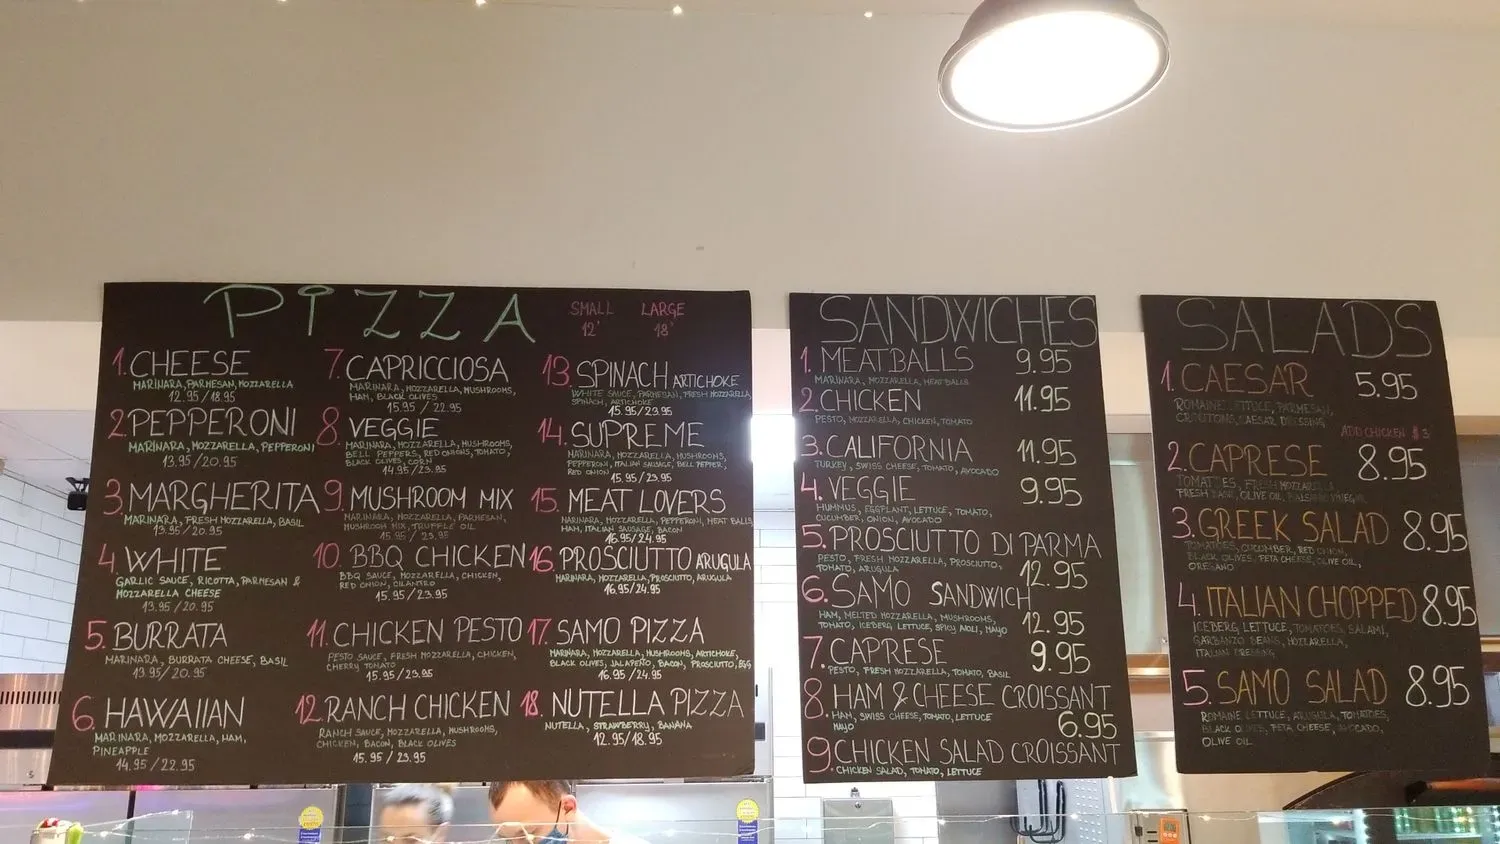 PIZZA
SMALL LARGE
12' 18'
1. CHEESE
MARINARA, PARMESAN, MOZZARELLA
12.95 / 18.95
2. PEPPERONI
MARINARA, MOZZARELLA, PEPPERONI
13.95 / 20.95
3. MARGHERITA
MARINARA, FRESH MOZZARELLA, BASIL
13.95 / 20.95
4. WHITE
GARLIC SAUCE, RICOTTA, PARMESAN &
MOZZARELLA CHEESE
13.95 / 20.95
5. BURRATA
MARINARA, BURRATA CHEESE, BASIL
13.95 / 20.95
6. HAWAIIAN
MARINARA, MOZZARELLA, HAM,
PINEAPPLE
14.95 / 22.95
7. CAPRICCIOSA
MARINARA, MOZZARELLA, MUSHROOMS,
HAM, BLACK OLIVES
15.95 / 22.95
8. VEGGIE
MARINARA, MOZZARELLA, MUSHROOMS,
BELL PEPPERS, RED ONIONS, TOMATO,
BLACK OLIVES, CORN
14.95 / 23.95
9. MUSHROOM MIX
MARINARA, MOZZARELLA, PARMESAN,
MUSHROOM MIX, TRUFFLE OIL
15.95 / 23.95
10. BBQ CHICKEN
BBQ SAUCE, MOZZARELLA, CHICKEN,
RED ONION, CILANTRO
15.95 / 23.95
11. CHICKEN PESTO
PESTO SAUCE, FRESH MOZZARELLA, CHICKEN,
CHERRY TOMATO
15.95 / 23.95
12. RANCH CHICKEN
RANCH SAUCE, MOZZARELLA, MUSHROOMS,
CHICKEN, BACON, BLACK OLIVES
15.95 / 23.95
13. SPINACH ARTICHOKE
WHITE SAUCE, PARMESAN, FRESH MOZZARELLA,
SPINACH, ARTICHOKE
15.95 / 23.95
14. SUPREME
MARINARA, MOZZARELLA, MUSHROOMS,
PEPPERONI, ITALIAN SAUSAGE, BELL PEPPER,
RED ONION
15.95 / 23.95
15. MEAT LOVERS
MARINARA, MOZZARELLA, PEPPERONI, MEAT BALLS,
HAM, ITALIAN SAUSAGE, BACON
16.95 / 24.95
16. PROSCIUTTO ARUGULA
MARINARA, MOZZARELLA, PROSCIUTTO, ARUGULA
16.95 / 24.95
17. SAMO PIZZA
MARINARA, MOZZARELLA, MUSHROOMS, ARTICHOKE,
BLACK OLIVES, JALAPEÑO, BACON, PROSCIUTTO, EGG
16.95 / 24.95
18. NUTELLA PIZZA
NUTELLA, STRAWBERRY, BANANA
12.95 / 18.95
SANDWICHES
1. MEATBALLS 9.95
MARINARA, MOZZARELLA, MEAT BALLS
2. CHICKEN 11.95
PESTO, MOZZARELLA, CHICKEN, TOMATO
3. CALIFORNIA 11.95
TURKEY, SWISS CHEESE, TOMATO, AVOCADO
4. VEGGIE 9.95
HUMMUS, EGGPLANT, LETTUCE, TOMATO,
CUCUMBER, ONION, AVOCADO
5. PROSCIUTTO DI PARMA
PESTO, FRESH MOZZARELLA, PROSCIUTTO,
TOMATO, ARUGULA 12.95
6. SAMO SANDWICH
HAM, MELTED MOZZARELLA, MUSHROOMS,
TOMATO, ICEBERG LETTUCE, SPICY AIOLI, MAYO 12.95
7. CAPRESE 9.95
PESTO, FRESH MOZZARELLA, TOMATO, BASIL
8. HAM & CHEESE CROISSANT
HAM, SWISS CHEESE, TOMATO, LETTUCE
MAYO 6.95
9. CHICKEN SALAD CROISSANT
CHICKEN SALAD, TOMATO, LETTUCE
SALADS
1. CAESAR 5.95
ROMAINE LETTUCE, PARMESAN,
CROUTONS, CAESAR DRESSING
ADD CHICKEN $3
2. CAPRESE 8.95
TOMATOES, FRESH MOZZARELLA
FRESH BASIL, OLIVE OIL, BALSAMIC VINEGAR
3. GREEK SALAD 8.95
TOMATOES, CUCUMBER, RED ONION,
BLACK OLIVES, FETA CHEESE, OLIVE OIL,
OREGANO
4. ITALIAN CHOPPED 8.95
ICEBERG LETTUCE, TOMATOES, SALAMI,
GARBANZO BEANS, MOZZARELLA,
ITALIAN DRESSING
5. SAMO SALAD 8.95
ROMAINE LETTUCE, ARUGULA, TOMATOES,
BLACK OLIVES, FETA CHEESE, AVOCADO,
OLIVE OIL